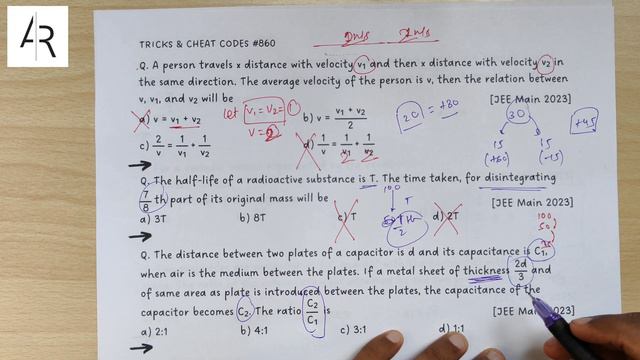 AR
2nis 2nis
TRICKS & CHEAT CODES #860
Q. A person travels x distance with velocity v₁ and then x distance with velocity v₂ in
the same direction. The average velocity of the person is v, then the relation between
v, v₁, and v₂ will be [JEE Main 2023]
let v₁ = v₂ = 1
v = 2
a) v = v₁ + v₂ b) v = (v₁ + v₂)/2
20 = +80
30
+45
c) 2/v = 1/v₁ + 1/v₂ d) 1/v = 1/v₁ + 1/v₂
15 15
(+60) (-15)
Q. The half-life of a radioactive substance is T. The time taken, for disintegrating
7/8 th part of its original mass will be [JEE Main 2023]
100
T
a) 3T b) 8T c) T d) 2T
100
50
25
Q. The distance between two plates of a capacitor is d and its capacitance is C₁,
when air is the medium between the plates. If a metal sheet of thickness 2d/3 and
of same area as plate is introduced between the plates, the capacitance of the
capacitor becomes C₂. The ratio C₂/C₁ is [JEE Main 2023]
a) 2:1 b) 4:1 c) 3:1 d) 1:1